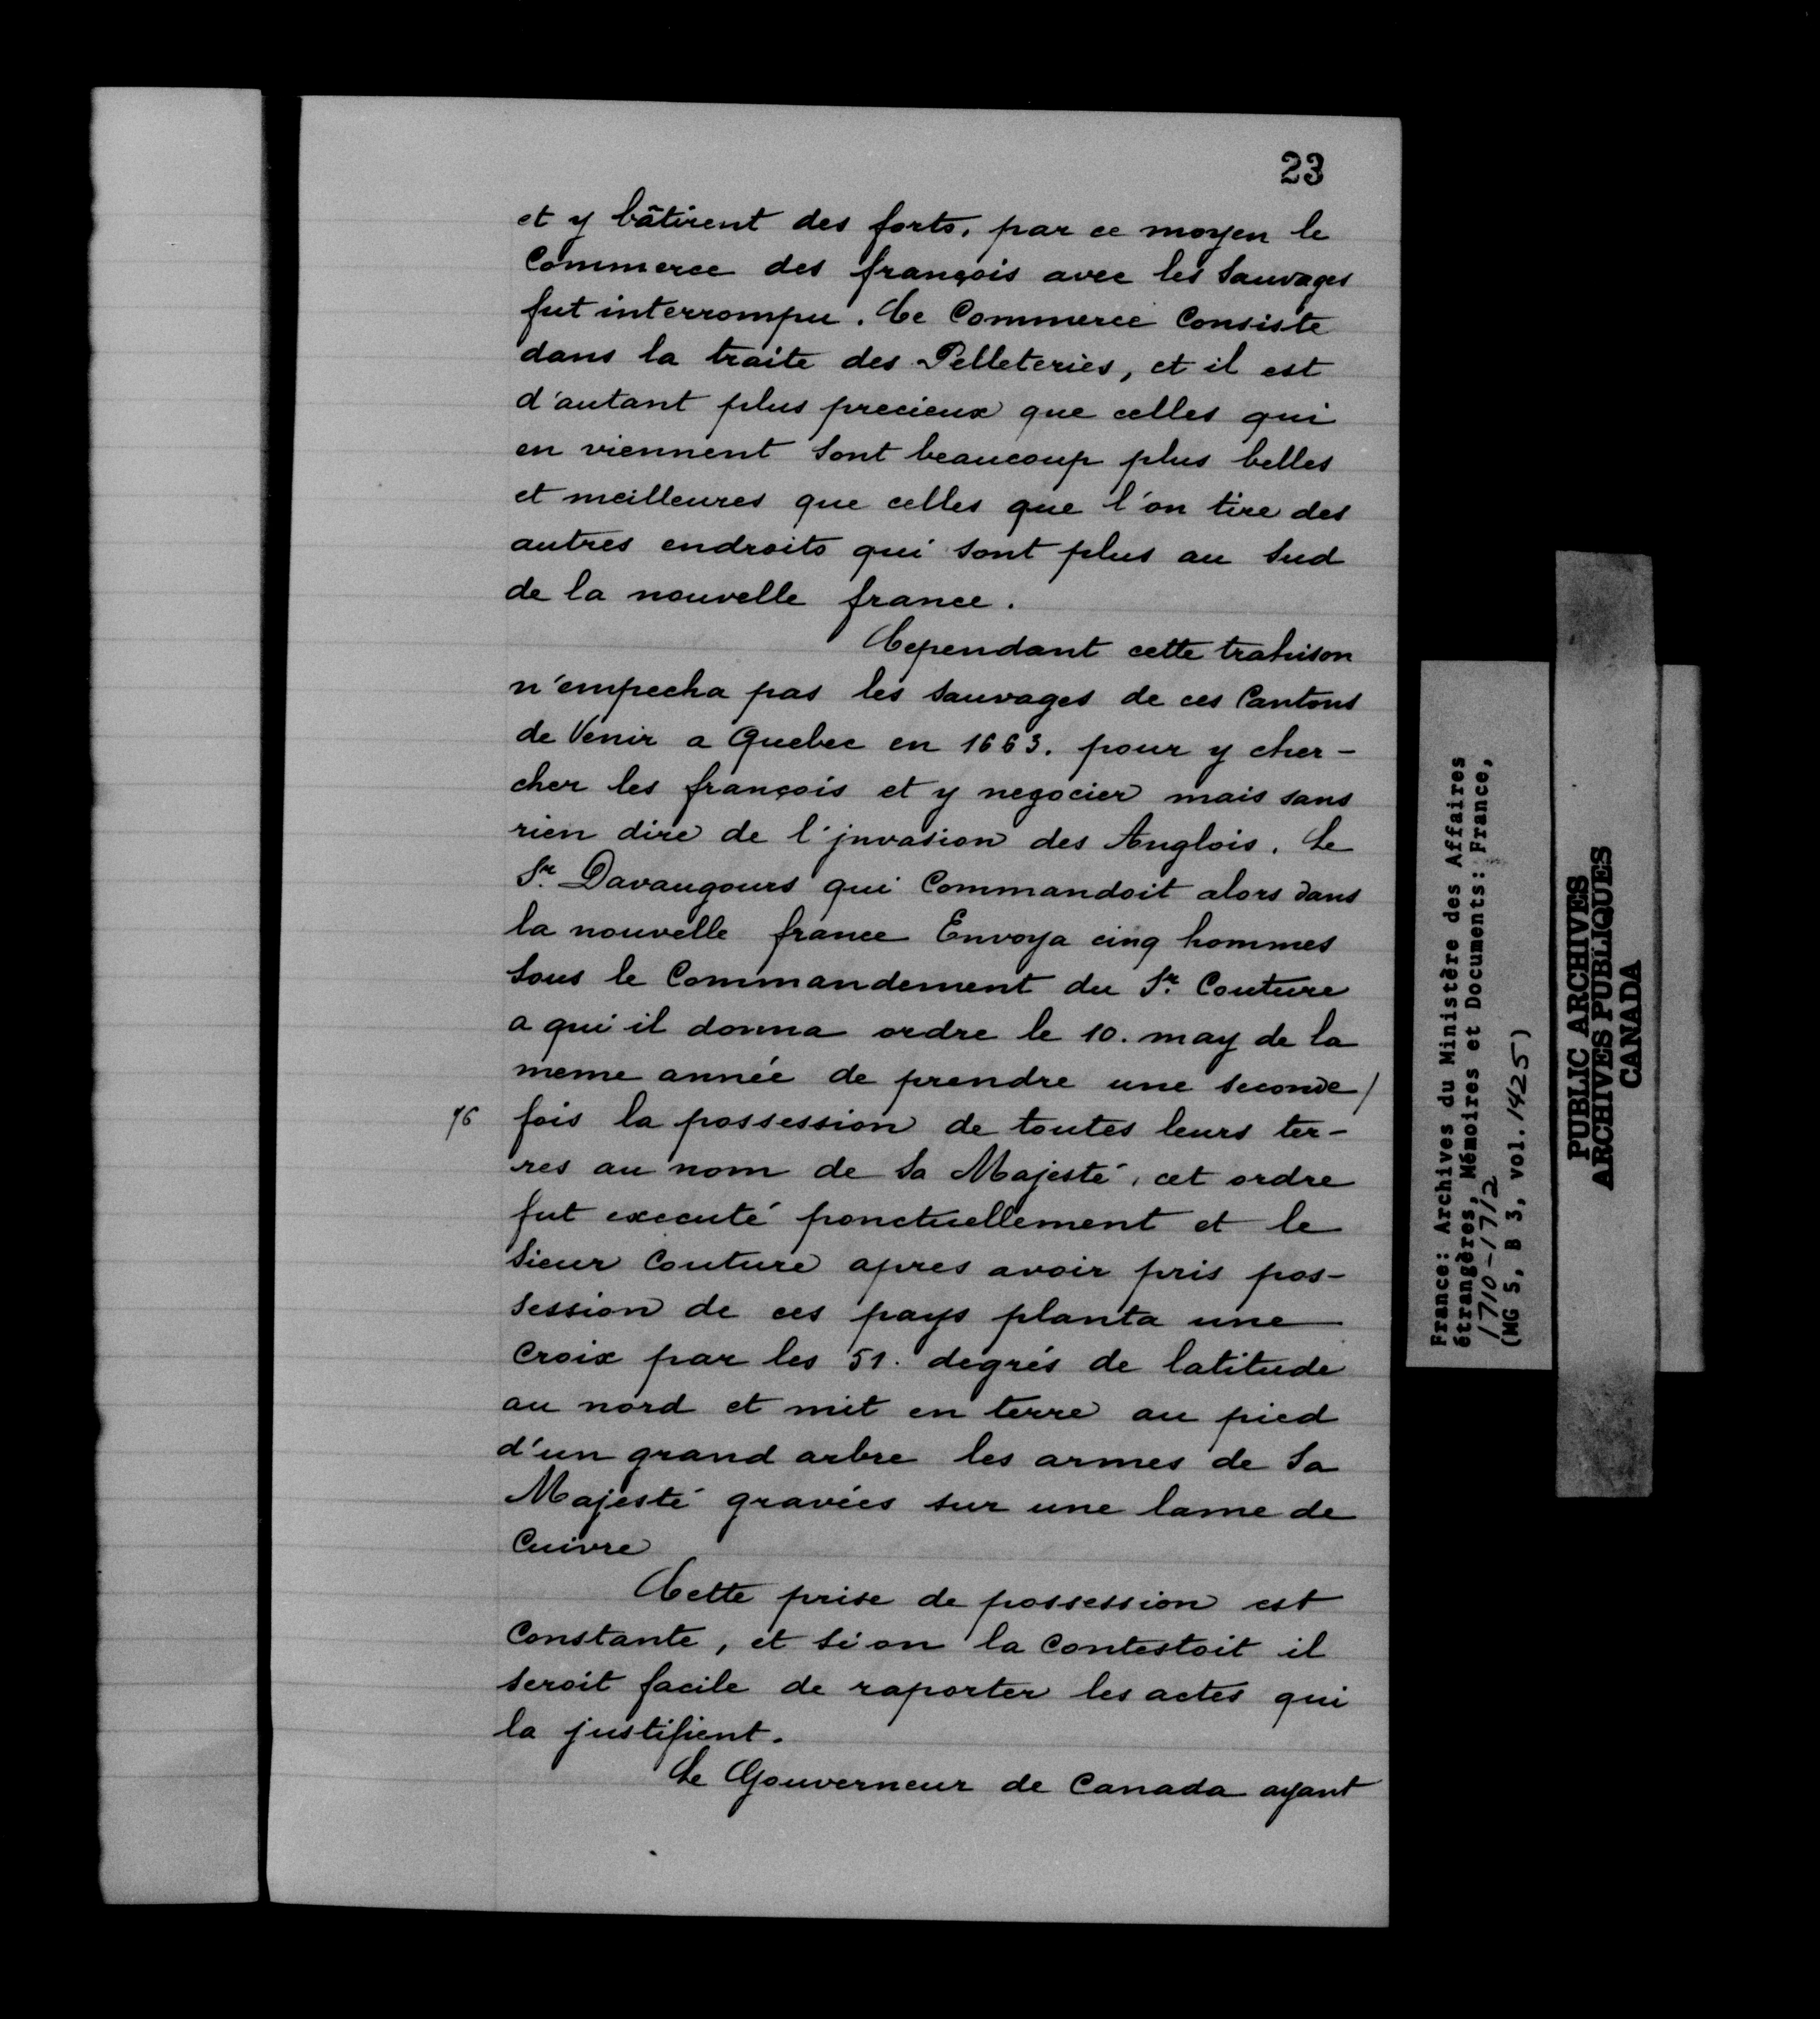 23
et y bâtirent des forts. par ce moyen le
Commerce des françois avec les Sauvages
fut interrompu. Ce Commerce Consiste
dans la traite des Pelleteries, et il est
d'autant plus precieux que celles qui
en viennent Sont beaucoup plus belles
et meilleures que celles que l'on tire des
autres endroits qui Sont plus au Sud
de la nouvelle france.
Cependant cette trahison
n'empecha pas les Sauvages de ces Cantons
de Venir a Quebec en 1663. pour y cher-
cher les françois et y negocier mais sans
rien dire de l'jnvasion des Anglois. Le
Sr. Davaugours qui Commandoit alors dans
la nouvelle france Envoya cinq hommes
Sous le Commandement du Sr. Couture
a qui il donna ordre le 10. may de la
meme année de prendre une seconde/
76 fois la possession de toutes leurs ter-
res au nom de Sa Majesté, cet ordre
fut executé ponctuellement et le
Sieur Couture apres avoir pris pos-
session de ces pays planta une
Croix par les 51. degrés de latitude
au nord et mit en terre au pied
d'un grand arbre les armes de Sa
Majesté gravées sur une lame de
Cuivre
Cette prise de possession est
Constante, et Si on la Contestoit il
seroit facile de raporter les actes qui
la justifient.
Le Gouverneur de Canada ayant
France: Archives du Ministère des Affaires
étrangères, Mémoires et Documents: France,
1710-1712
(MG 5, B 3, vol. 1425)
PUBLIC ARCHIVES
ARCHIVES PUBLIQUES
CANADA